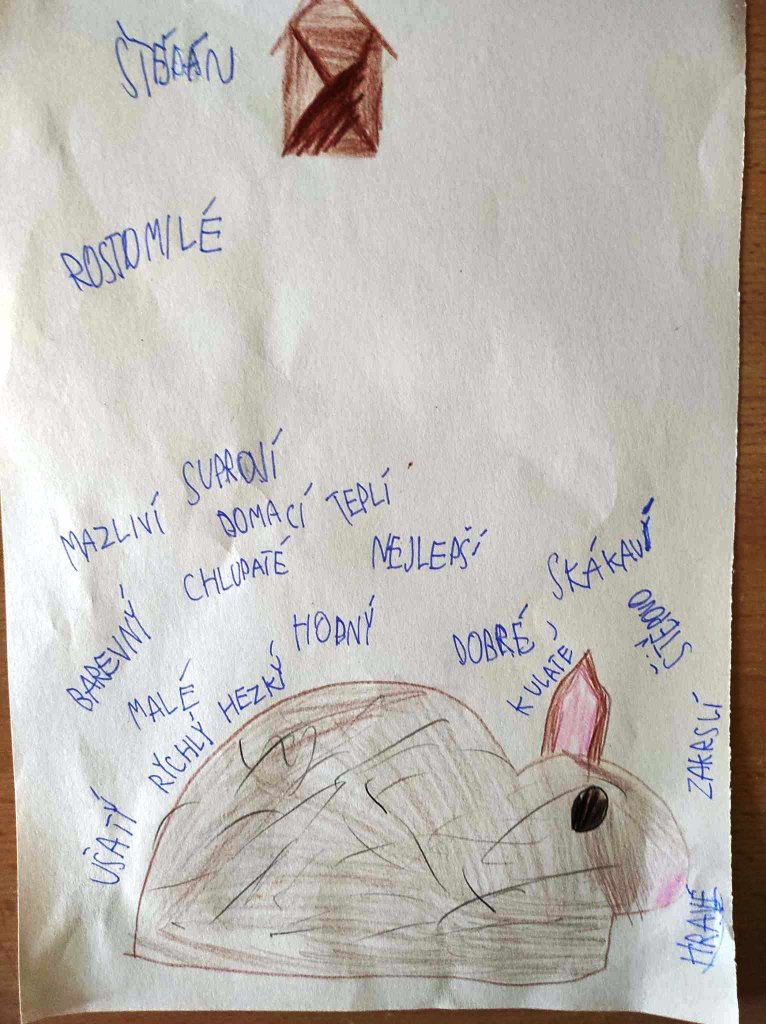 ŠTĚPÁN
ROSTOMILÉ
SUPROVÍ
MAZLIVÍ
DOMACÍ
TEPLÍ
CHLUPATÉ
NEJLEPŠÍ
SKÁKAVÝ
BAREVNÝ
HODNÝ
DOBRÉ
KULATÉ
MALÉ
HEZKÝ
RYCHLÝ
ZAKRSLÍ
UŠATÝ
HRAVÉ